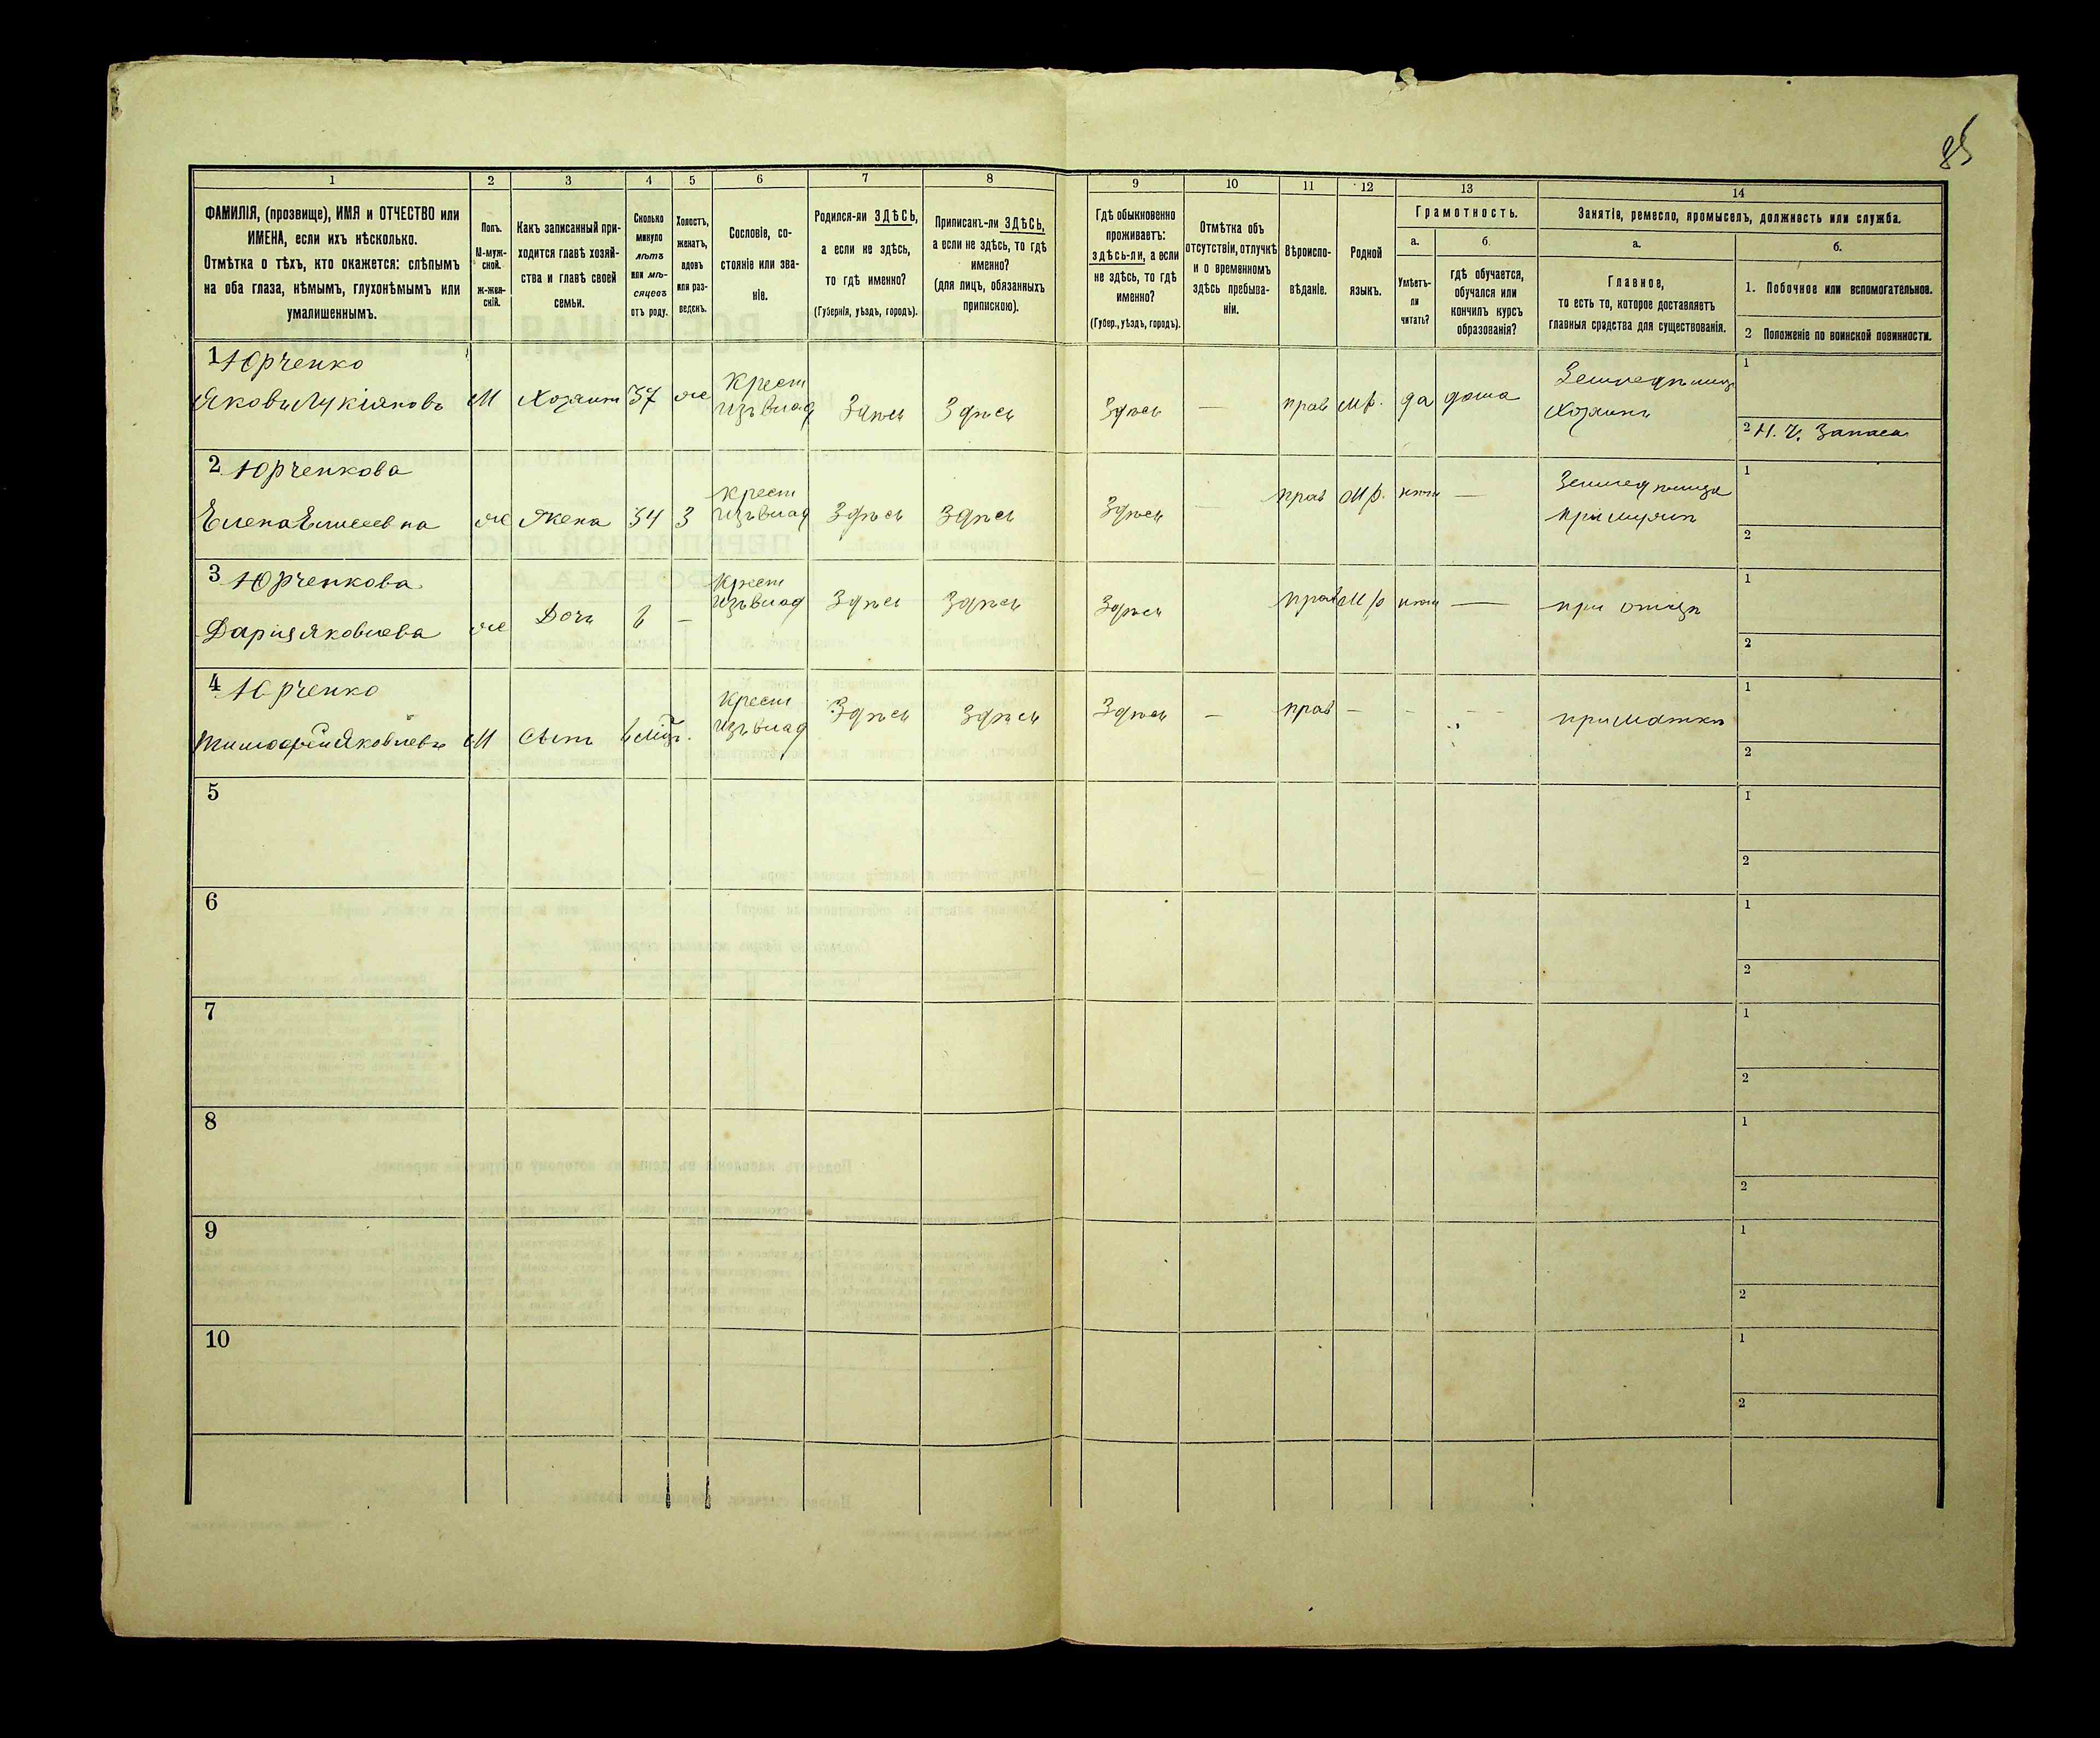 85
1 2 3 4 5 6 7 8 9 10 11 12 13 14
ФАМИЛІЯ, (прозвище), ИМЯ и ОТЧЕСТВО или
ИМЕНА, если ихъ нѣсколько.
Отмѣтка о тѣхъ, кто окажется: слѣпымъ
на оба глаза, нѣмымъ, глухонѣмымъ или
умалишеннымъ.
Полъ.
М-муж-
ской.
ж-жен-
скій.
Какъ записанный при-
ходится главѣ хозяй-
ства и главѣ своей
семьи.
Сколько
минуло
лѣтъ
или мѣ-
сяцевъ
отъ роду.
Холостъ,
женатъ,
вдовъ
или раз-
веденъ.
Сословіе, со-
стояніе или зва-
ніе.
Родился-ли ЗДѢСЬ,
а если не здѣсь,
то гдѣ именно?
(Губернія, уѣздъ, городъ).
Приписанъ-ли ЗДѢСЬ,
а если не здѣсь, то гдѣ
именно?
(для лицъ, обязанныхъ
припискою).
Гдѣ обыкновенно
проживаетъ:
здѣсь-ли, а если
не здѣсь, то гдѣ
именно?
(Губер., уѣздъ, городъ).
Отмѣтка объ
отсутствіи, отлучкѣ
и о временномъ
здѣсь пребыва-
ніи.
Вѣроиспо-
вѣданіе.
Родной
языкъ.
Грамотность.
а.
Умѣетъ-
ли
читать?
б.
гдѣ обучается,
обучался или
кончилъ курсъ
образованія?
Занятіе, ремесло, промыселъ, должность или служба.
а.
Главное,
то есть то, которое доставляетъ
главныя средства для существованія.
б.
1. Побочное или вспомогательное.
2 Положеніе по воинской повинности.
1 Юрченко
Яковъ Лукіяновъ М Хозяинъ 37 ж Крест Изъ влад Здѣсь Здѣсь Здѣсь — прав М.р. да дома Земледѣлецъ
Хозяинъ
1
2 Н. Ч. Запаса
2 Юрченкова
Елена Елисеевна ж Жена 34 З Крест Изъ влад Здѣсь Здѣсь Здѣсь — прав М.р. нѣтъ — Земледѣлица
при мужѣ
1
2
3 Юрченкова
Дарія Яковлева ж Дочь 6 — Крест Изъ влад Здѣсь Здѣсь Здѣсь прав М.р нѣтъ — при отцѣ
1
2
4 Юрченко
Тимофей Яковлевъ М Сынъ 6 мѣс. Крест Изъ влад Здѣсь Здѣсь Здѣсь — прав — — — при маткѣ
1
2
5
1
2
6
1
2
7
1
2
8
1
2
9
1
2
10
1
2